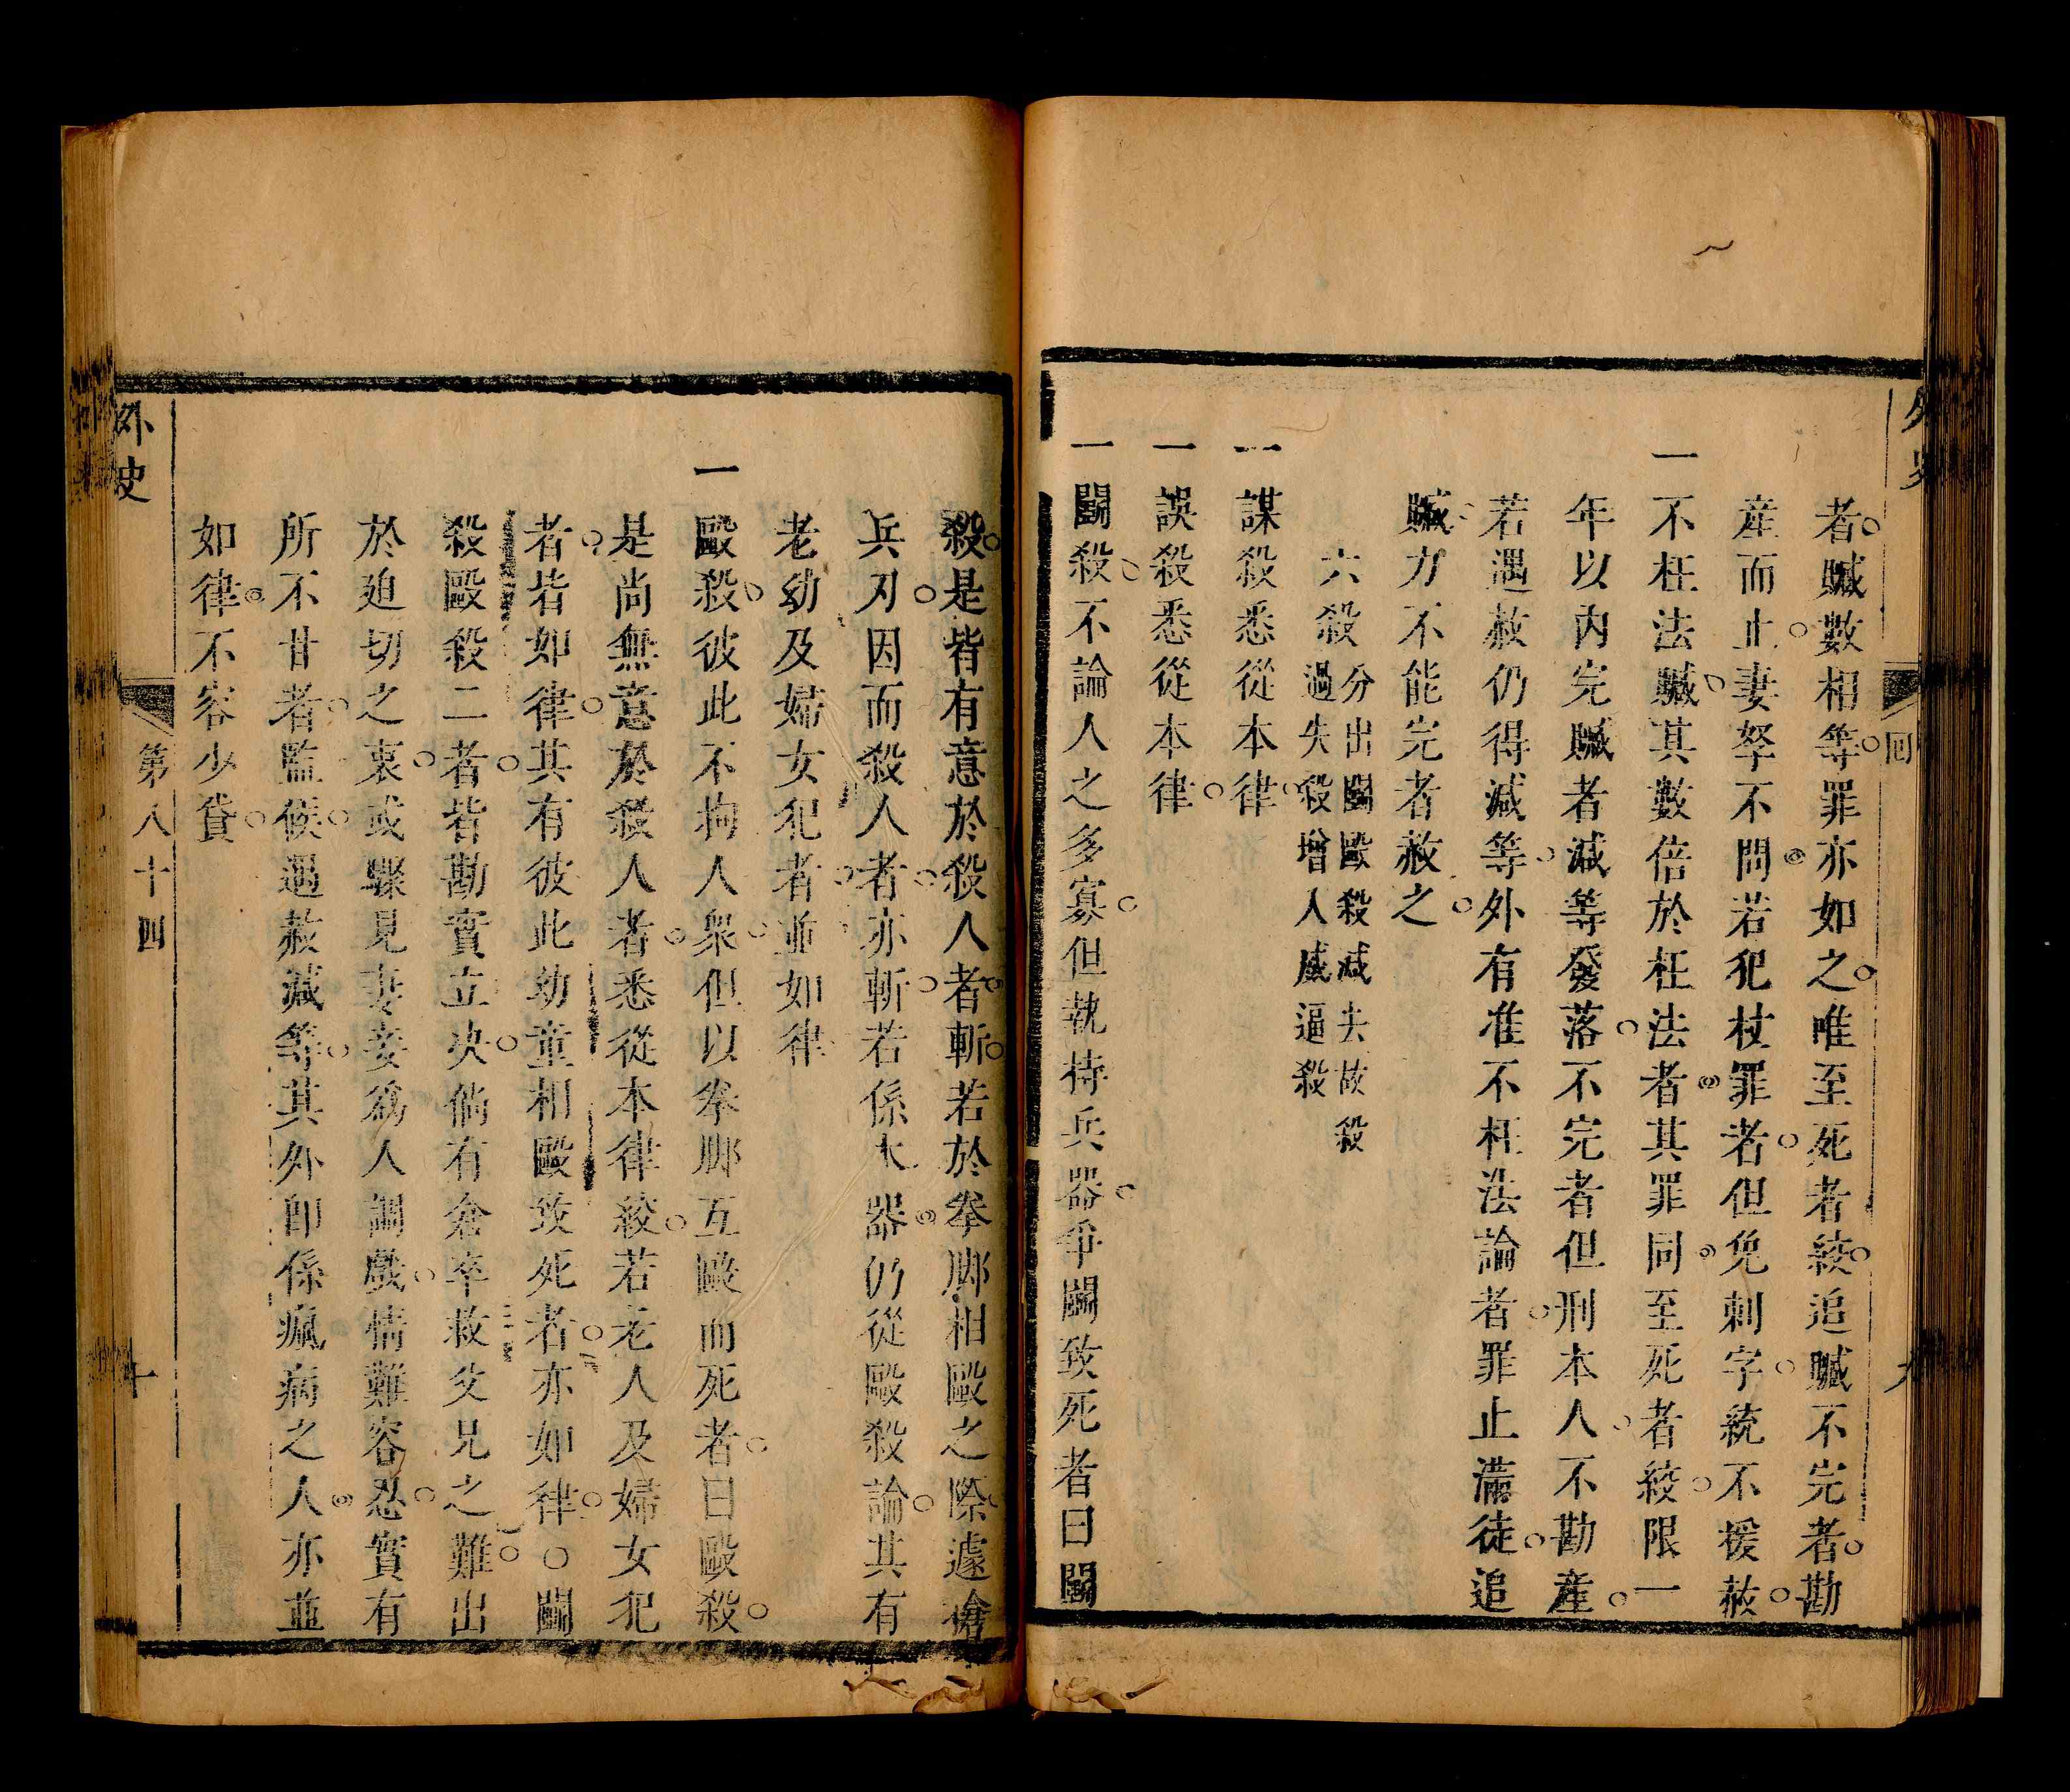 外史
回
九
者贓數相等罪亦如之唯至死者絞追贓不完者勘
產而止妻孥不問若犯杖罪者但免刺字統不援赦
一不枉法贓其數倍於枉法者其罪同至死者絞限一
年以內完贓者減等發落不完者但刑本人不勘產
若遇赦仍得減等外有准不枉法論者罪止滿徒追
贓力不能完者赦之
六殺
分出鬭毆殺減去故殺
過失殺增人威逼殺
一謀殺悉從本律
一誤殺悉從本律
一鬭殺不論人之多寡但執持兵器爭鬭致死者曰鬭
殺是皆有意於殺人者斬若於拳脚相毆之際遽搶
兵刃因而殺人者亦斬若係木器仍從毆殺論其有
老幼及婦女犯者並如律
一毆殺彼此不拘人衆但以拳脚互毆而死者曰毆殺
是尚無意於殺人者悉從本律絞若老人及婦女犯
者皆如律其有彼此幼童相毆致死者亦如律○鬭
殺毆殺二者皆勘實立决倘有倉卒救父兄之難出
於迫切之衷或驟見妻妾爲人調戲情難容忍實有
所不甘者監候遇赦減等其外即係瘋病之人亦並
如律不容少貸
外史
第八十四
十